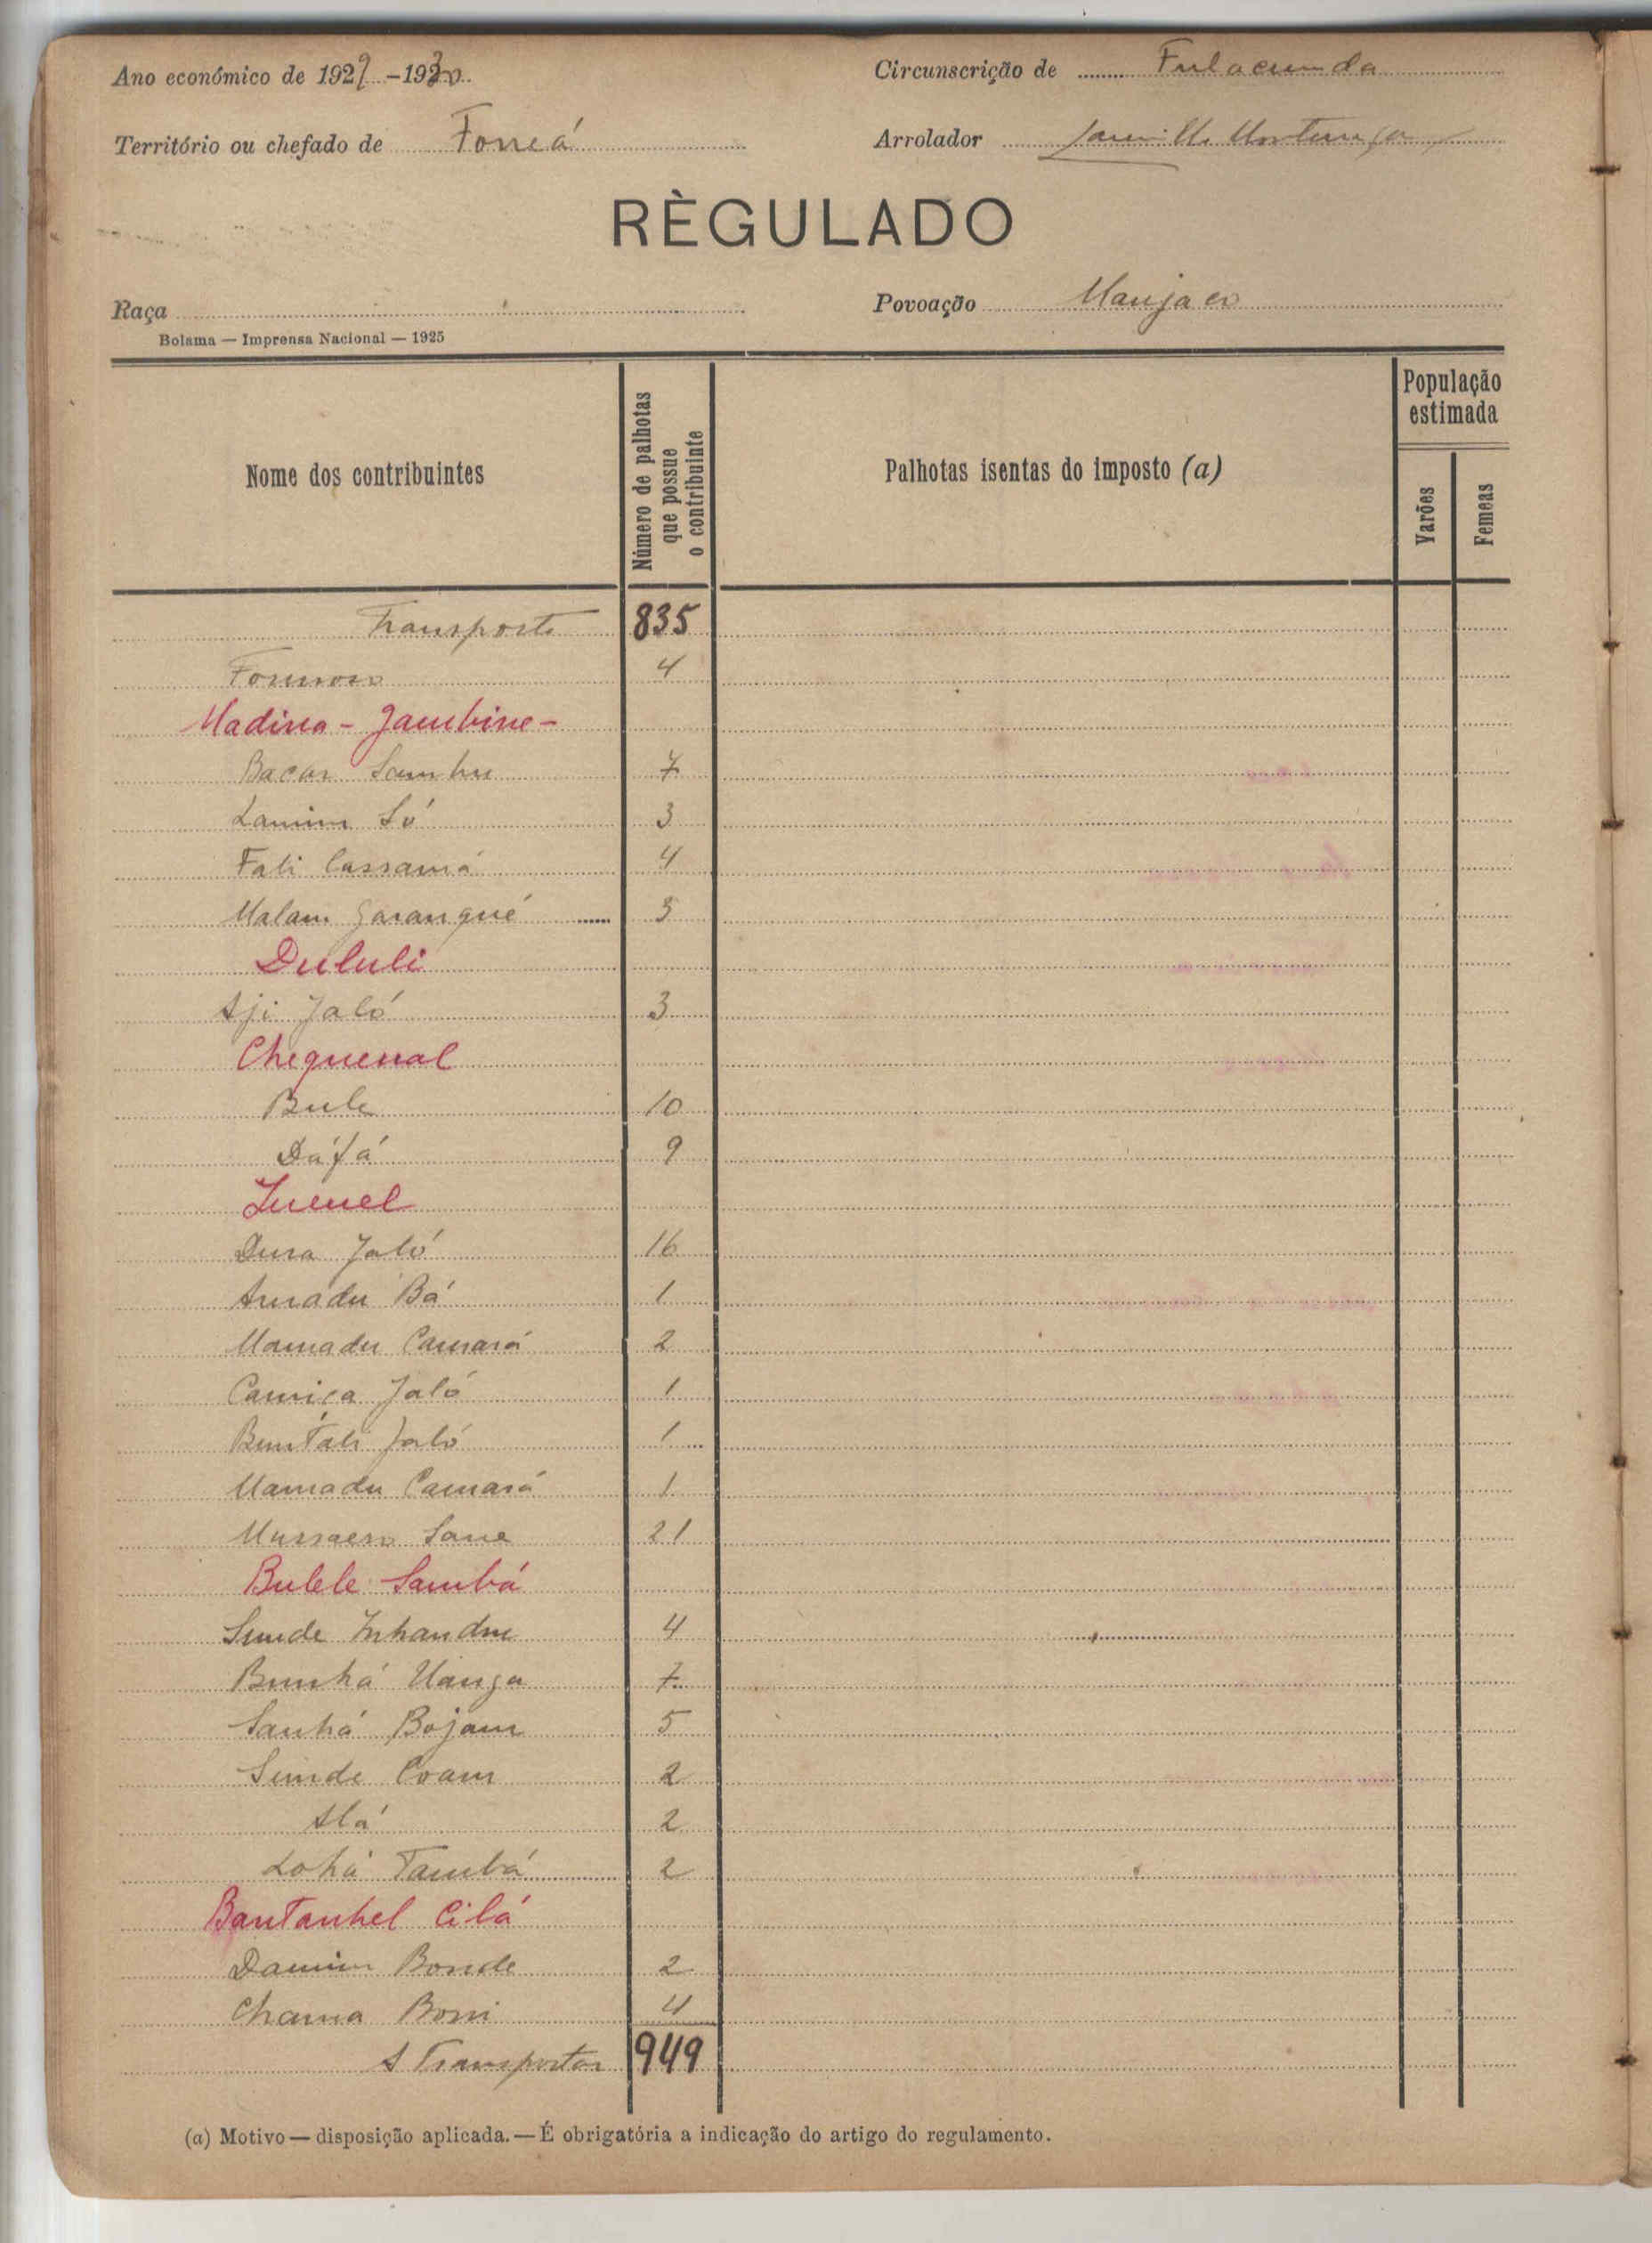 Ano económico de 1929-1930
Circunscrição de Fulacunda
Território ou chefado de Forreá
Arrolador
RÈGULADO
Raça
Povoação Manjaco
Bolama — Imprensa Nacional — 1925
Nome dos contribuintes
Número de palhotas que possue o contribuinte
Palhotas isentas do imposto (a)
População estimada
Varões
Femeas
Transporte 835
Formoso 4
Madina - Jambine -
Bacar Sambu 7
Lamim Só 3
Fali Cassamá 4
Malam Garanqué 3
Dululi
Aji Jaló 3
Chequenal
Bule 10
Dáfá 9
Jumel
Dura Jaló 16
Amadu Bá 1
Mamadu Camará 2
Camiça Jaló 1
Buntali Jaló 1
Mamadu Camará 1
Mussaem Sane 21
Bulele Sambá
Sunde Inhandu 4
Bunhá Uanga 7
Sanhá Bojam 5
Sunde Coam 2
Alá 2
Lohá Tambá 2
Bantanhel Cilá
Damim Bonde 2
Chama Boni 4
A Transportar 949
(a) Motivo — disposição aplicada. — É obrigatória a indicação do artigo do regulamento.